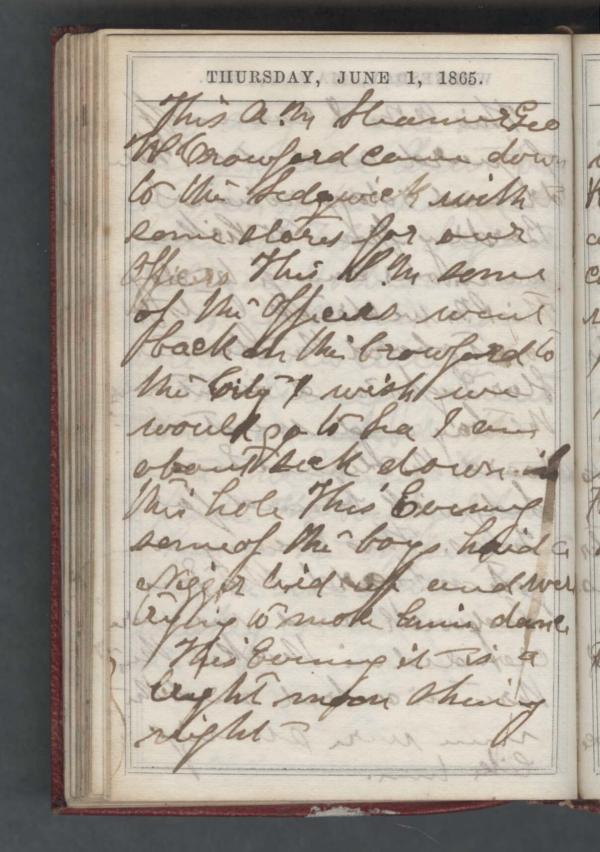 THURSDAY, JUNE 1, 1865.
This A.M Steamer Geo
W Crowford came down
to the Sedgwick with
some stores for our
Officers This P.M some
of the Officers went
back on the Crowford to
the City I wish we
would go to Sea I am
about sick down in
this hole This Evening
some of the boys had a
Nigger and were
trying to make him dance
This Evening it is a
bright moon shing
night